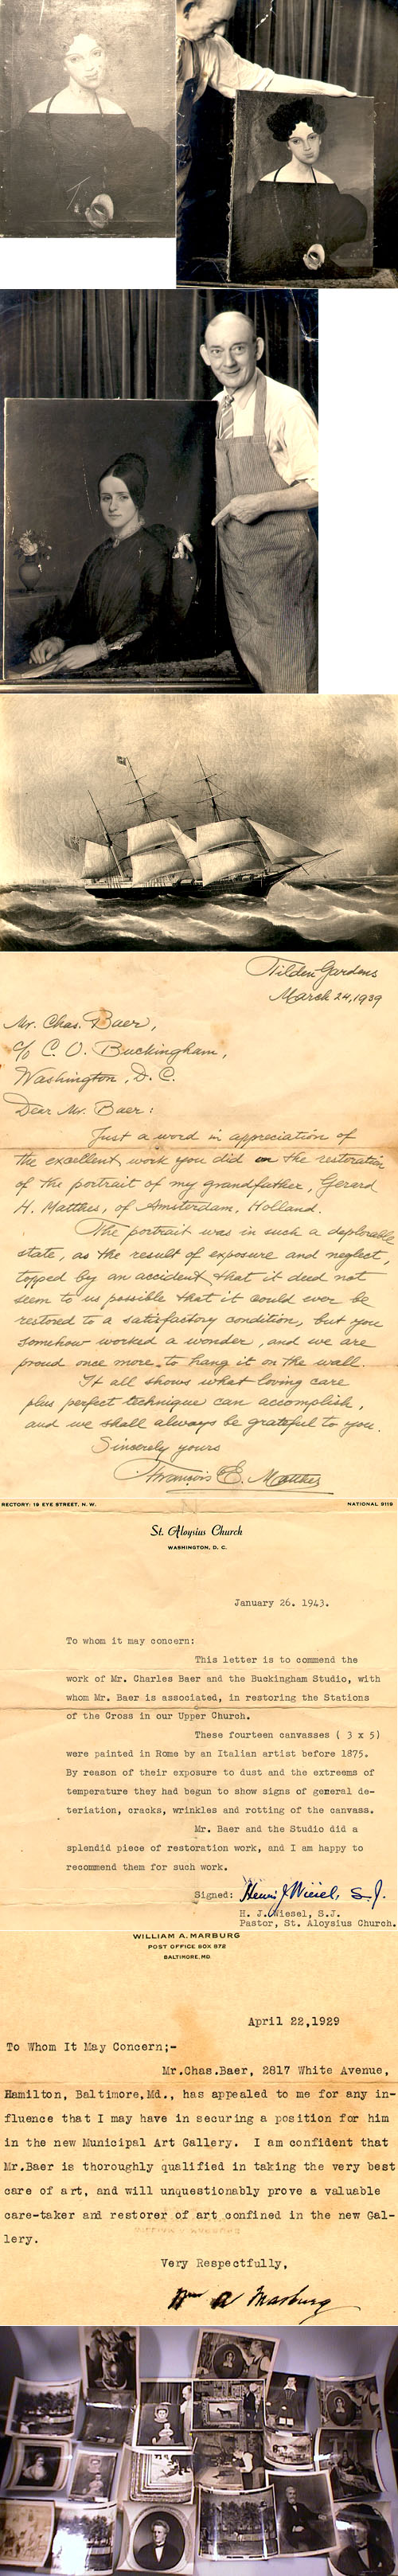 Tilden Gardens
March 24, 1939
Mr. Chas. Baer,
c/o C. O. Buckingham,
Washington, D.C.
Dear Mr. Baer:
Just a word in appreciation of
the excellent work you did in the restoration
of the portrait of my grandfather, Gerard
H. Matthes, of Amsterdam, Holland.
The portrait was in such a deplorable
state, as the result of exposure and neglect,
topped by an accident, that it deed not
seem to us possible that it could ever be
restored to a satisfactory condition, but you
somehow worked a wonder, and we are
proud once more to hang it on the wall.
It all shows what loving care
plus perfect technique can accomplish,
and we shall always be grateful to you.
Sincerely yours
François E. Matthes
RECTORY: 19 EYE STREET, N. W. NATIONAL 9119
St. Aloysius Church
WASHINGTON, D. C.
January 26. 1943.
To whom it may concern:
This letter is to commend the
work of Mr. Charles Baer and the Buckingham Studio, with
whom Mr. Baer is associated, in restoring the Stations
of the Cross in our Upper Church.
These fourteen canvasses ( 3 x 5)
were painted in Rome by an Italian artist before 1875.
By reason of their exposure to dust and the extreems of
temperature they had begun to show signs of general de-
teriation, cracks, wrinkles and rotting of the canvass.
Mr. Baer and the Studio did a
splendid piece of restoration work, and I am happy to
recommend them for such work.
Signed: Henri J. Wiesel, S.J.
H. J. Wiesel, S.J.
Pastor, St. Aloysius Church.
WILLIAM A. MARBURG
POST OFFICE BOX 872
BALTIMORE, MD.
April 22,1929
To Whom It May Concern;-
Mr.Chas.Baer, 2817 White Avenue,
Hamilton, Baltimore,Md., has appealed to me for any in-
fluence that I may have in securing a position for him
in the new Municipal Art Gallery. I am confident that
Mr.Baer is thoroughly qualified in taking the very best
care of art, and will unquestionably prove a valuable
care-taker and restorer of art confined in the new Gal-
lery.
Very Respectfully,
Wm A Marburg